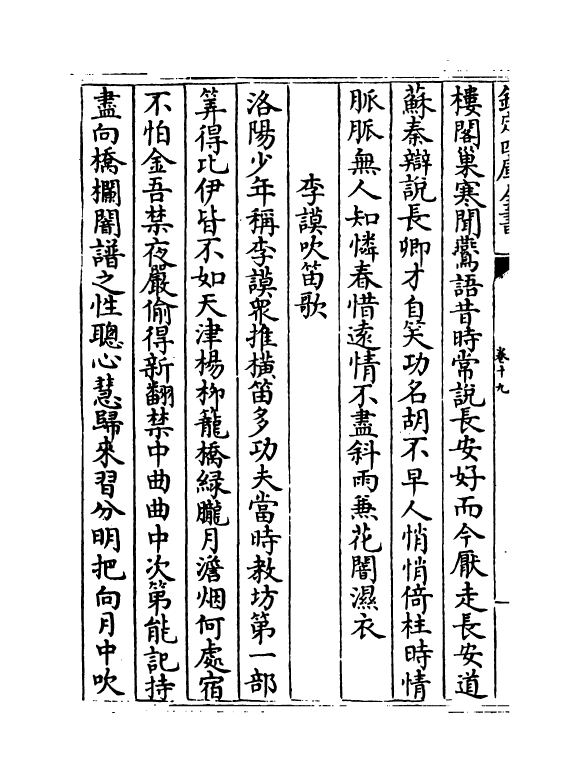 欽定四庫全書
卷十九
樓閣巢寒聞鶯語昔時常說長安好而今厭走長安道
蘇秦辯說長卿才自笑功名胡不早人悄悄倚柱時情
脈脈無人知憐春惜遠情不盡斜雨兼花闇濕衣
李謨吹笛歌
洛陽少年稱李謨衆推橫笛多功夫當時教坊第一部
筭得比伊皆不如天津楊栁籠橋綠朧月澹烟何處宿
不怕金吾禁夜嚴偷得新翻禁中曲曲中次第能記持
盡向橋欄闇譜之性聰心慧歸來習分明把向月中吹